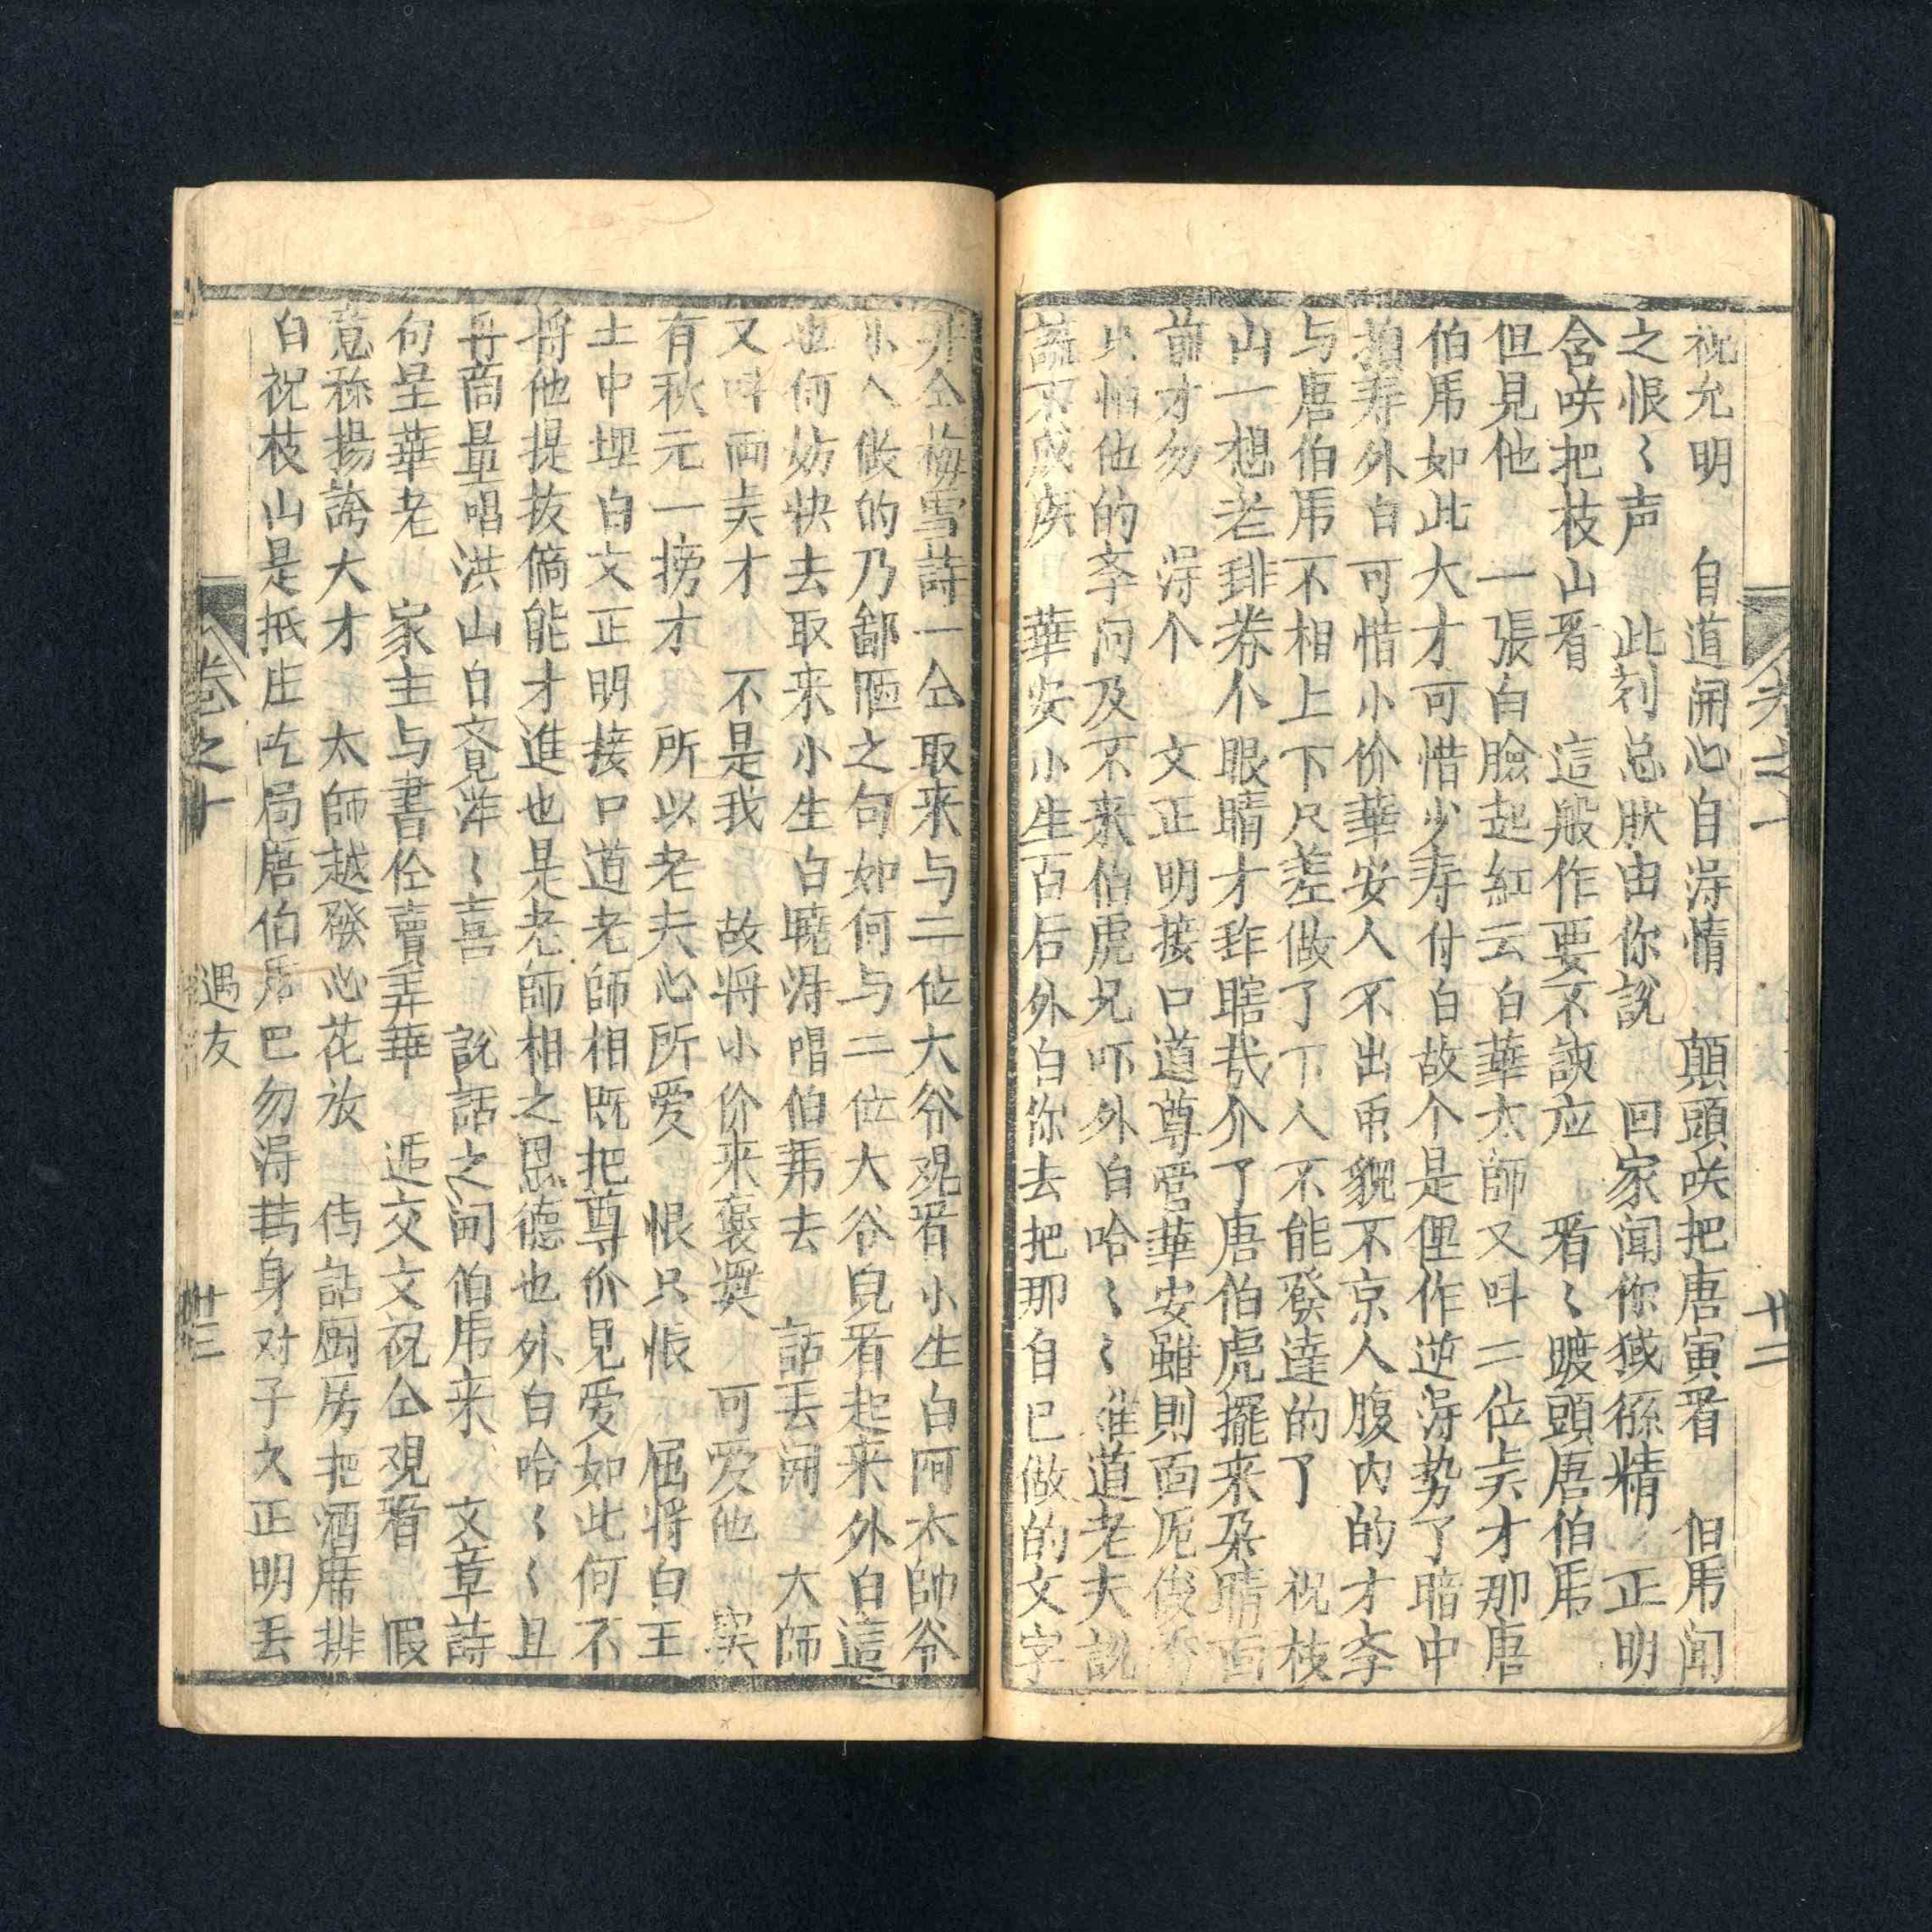 祝允明　自道開心自淂情　顛頭咲把唐寅看　伯乕闻
之恨〻声　此刻总肰由你説　回家闻你猢猻精　正明
含咲把枝山看　這般作要不該应　看〻皣頭唐伯乕
但見他　一張白臉起紅云白華太師又呌二位才那唐
伯乕如此大才可惜少寿付白故个是俚作逆淂势了暗中
寿外白可惜小价華安人不出眾貌不京人腹内的才李
与唐伯乕不相上下尺差做了丁人不能發達的了　祝枝
山一想老个眼睛才瞎哉介了唐伯虎擺来朶睛面
前才勿淂个　文正明接口道尊管華安雖則面
他的李问及不来伯虎兄吓外白哈〻〻道老夫説
不成　華安小生百后外白你去把那自己做的文字
仝梅雪詩一仝取来与二位大爷观看小生白呵太師爷
小人做的乃鄙陋之句如何与二位大爷見看起来外白這
也何妨快去取来小生白曉淂唱伯乕去　話丟闲　大師
又呌両才　不是我　故将小价来褒奨　可爱他　寔
有秋元一榜才　所以老夫心所爱　恨只恨　屈将白玉
土中埋白文正明接口道老師相既把尊价見爱如此何不
将他提拔倘能才進也是老師相之恩德也外白哈〻〻且
再商量唱洪山白竟洋〻喜　說話之间伯乕来　文章詩
句呈華老　家主与書仝賣弄華　逓交文祝仝观看　假
意称揚誇大才　太師越發心花放　传話厨房把酒席排
白祝枝山是抵庄局唐伯乕巴勿淂身对子文正明丟
卷之十
遇友
廿三
廿二